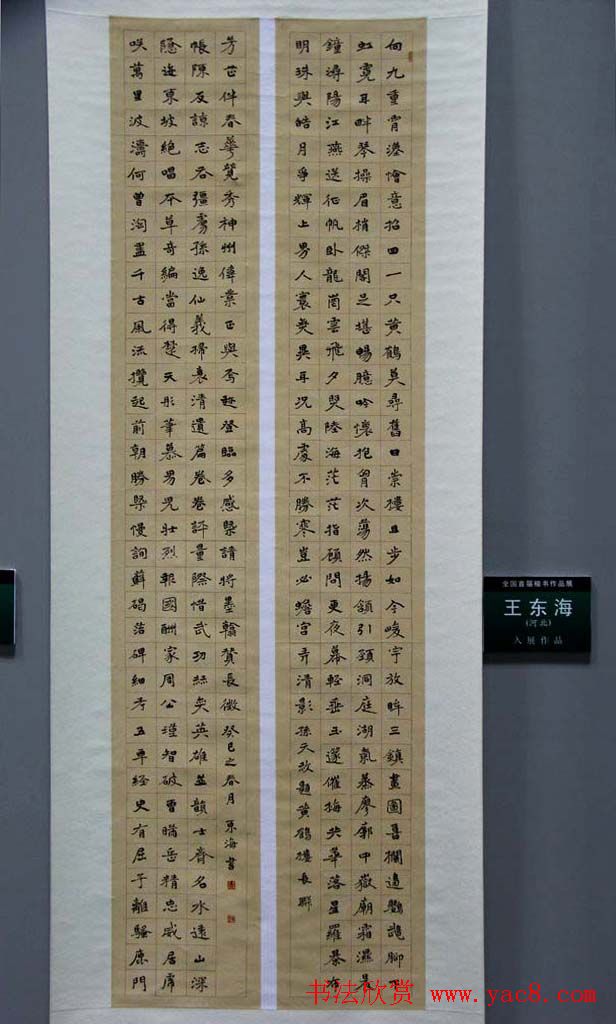 向九重霄凴憎意招回一只黃鶴莫尋舊日崇樓且步如今峻宇放眸三鎮畫圖喜欄邊鸚鵡腳下
虹霓耳畔琴操眉梢傑閣足堪暢臆吟懷抱胷次蕩然揚頷引頸洞庭湖氣慕廖廓甲嶽廟霜濕晨
鐘潯陽江燕送征帆臥龍崗雲飛夕爂陸海茫茫指顧間更夜幕輕垂玉邃催梅英華落星羅棊布
明珠與皓月爭輝上界人寰奚異耳況高處不勝寒豈必蟾宮弄清影孫天放題黃鶴樓長聯
咲萬里波濤何曾淘盡千古風流攬起前朝勝槩慢詢蘚碣落碑細考五車經史有屈子離騷康門
隱海東坡絕唱本草奇編當得楚天彤筆慕男兒壯烈報國酬家周公瑾智破曹瞞岳精忠威居席
帳陳友諒志吞疆虜孫逸仙義掃衰清遺篇卷卷評量際惜武功絲矣英雄並韻士齊名水遠山深
芳芷伴春華覽秀神州偉業正與秀迸登臨多感槩請將墨翰贊長徽癸巳之春月東海書
全国首届楷书作品展
王东海
(河北)
入展作品
书法欣赏 www.yac8.com